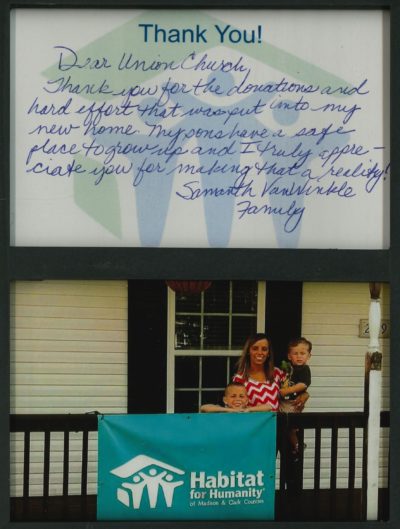 Thank You!
Dear Union Church,
Thank you for the donations and
hard effort that was put into my
new home. My sons have a safe
place to grow up and I truly appre-
ciate you for making that a reality!
Samanth VanWinkle
Family
Habitat
for Humanity
of Madison & Clark Counties